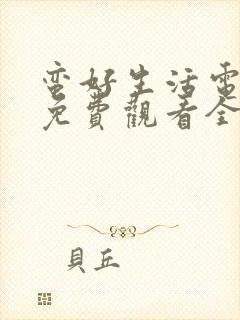 蛮好生活電
免費觀看全
貝丘